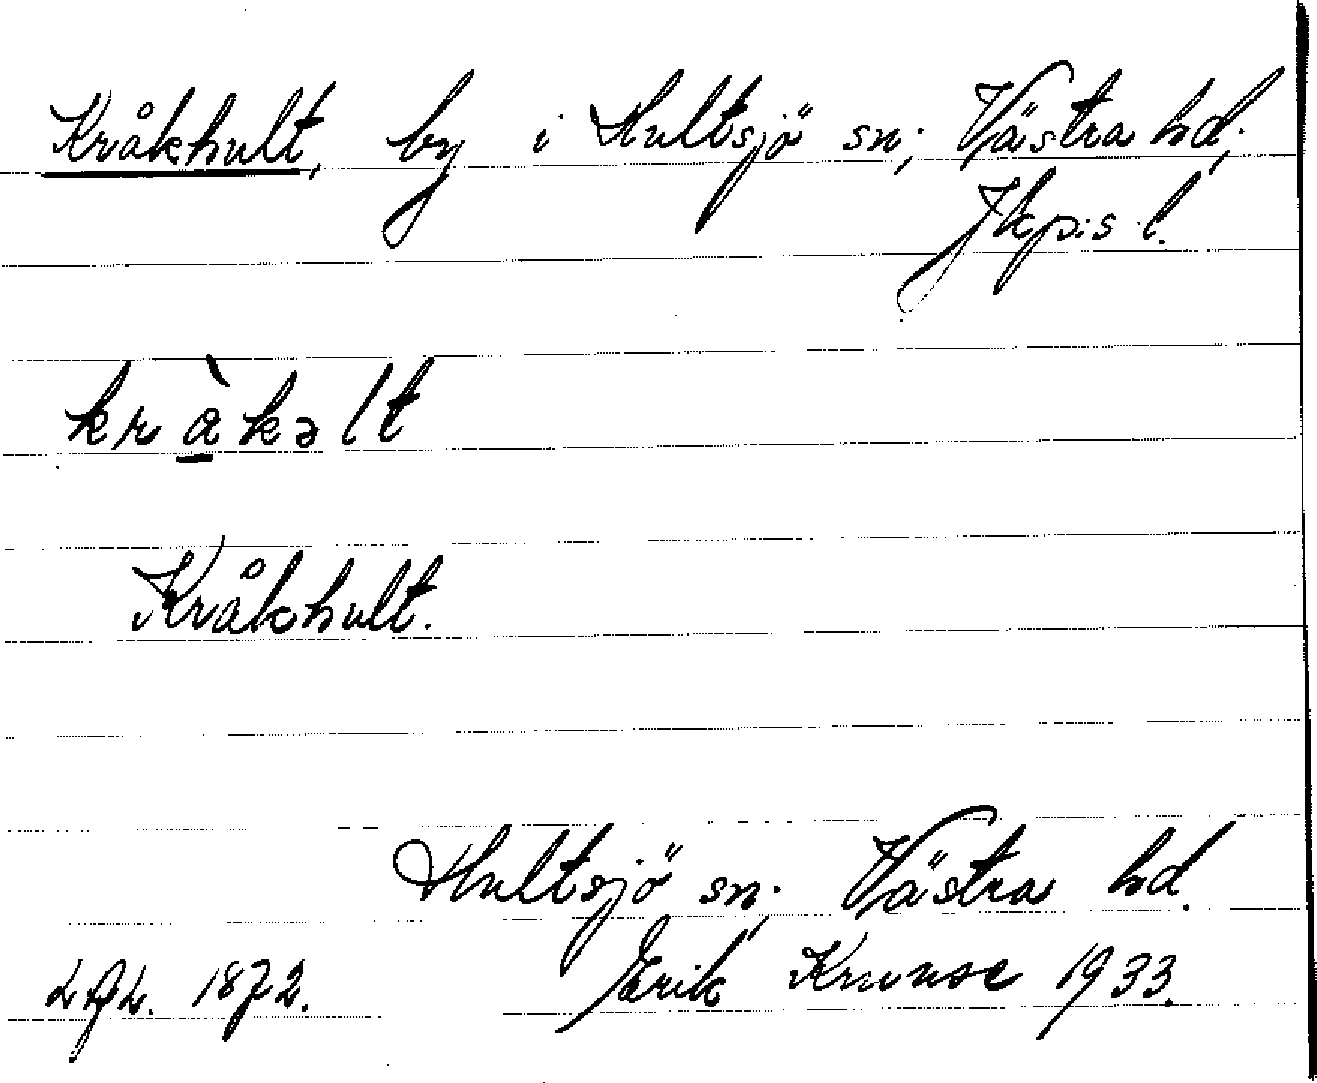 Kråkhult, by i Hultsjö sn; Västra hd;
Jkp:s l.
kràkəlt
Kråkhult.
Hultsjö sn; Västra hd.
Erik Kruuse 1933.
LAL. 1872.